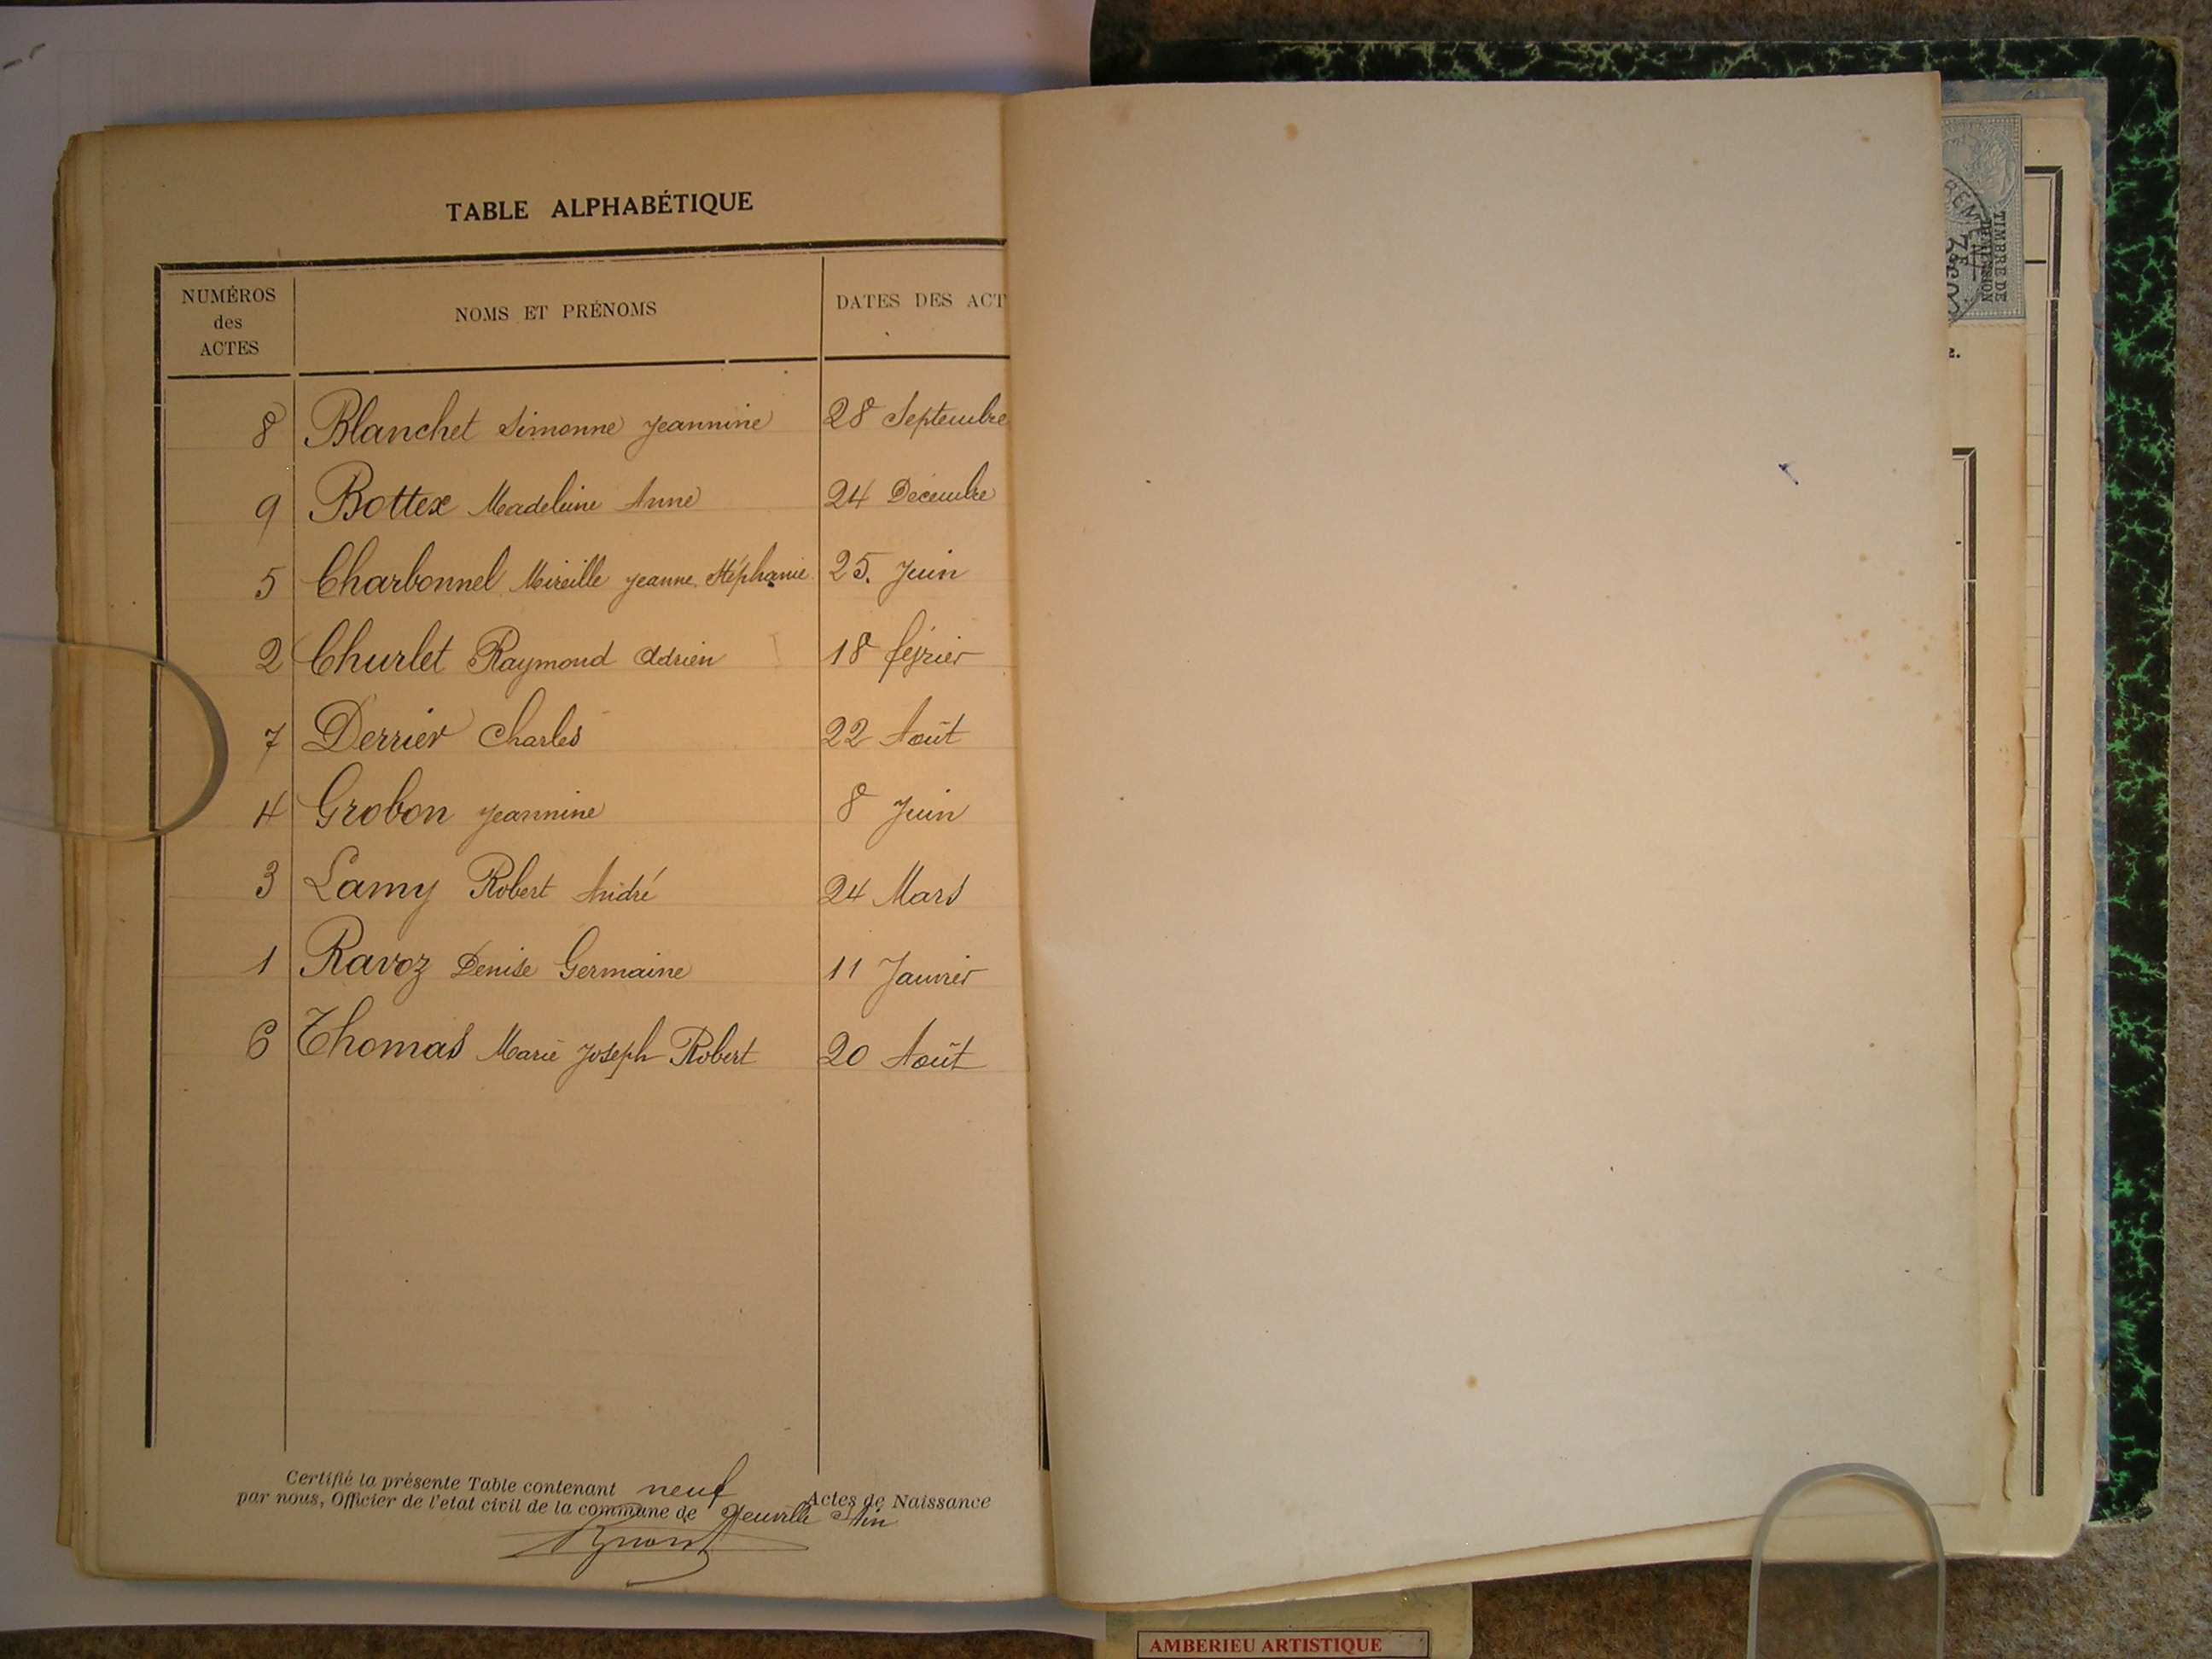 TABLE ALPHABÉTIQUE
NUMÉROS des ACTES NOMS ET PRÉNOMS DATES DES ACT
8 Blanchet Simonne Jeannine 28 Septembre
9 Bottex Madeleine Anne 24 Décembre
5 Charbonnel Mireille Jeanne Stéphanie 25. Juin
2 Churlet Raymond Adrien 18 février
7 Derrier Charles 22 Août
4 Grobon Jeannine 8 Juin
3 Lamy Robert André 24 Mars
1 Ravoz Denise Germaine 11 Janvier
6 Thomas Marie Joseph Robert 20 Août
Certifié la présente Table contenant neuf Actes de Naissance
par nous, Officier de l'etat civil de la commune de Neuville Ain
TIMBRE DE
DIMENSION
AMBERIEU ARTISTIQUE